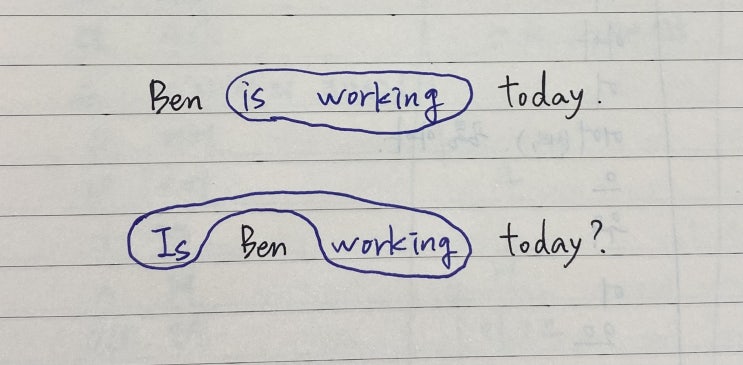 Ben is working today.
Is Ben working today?